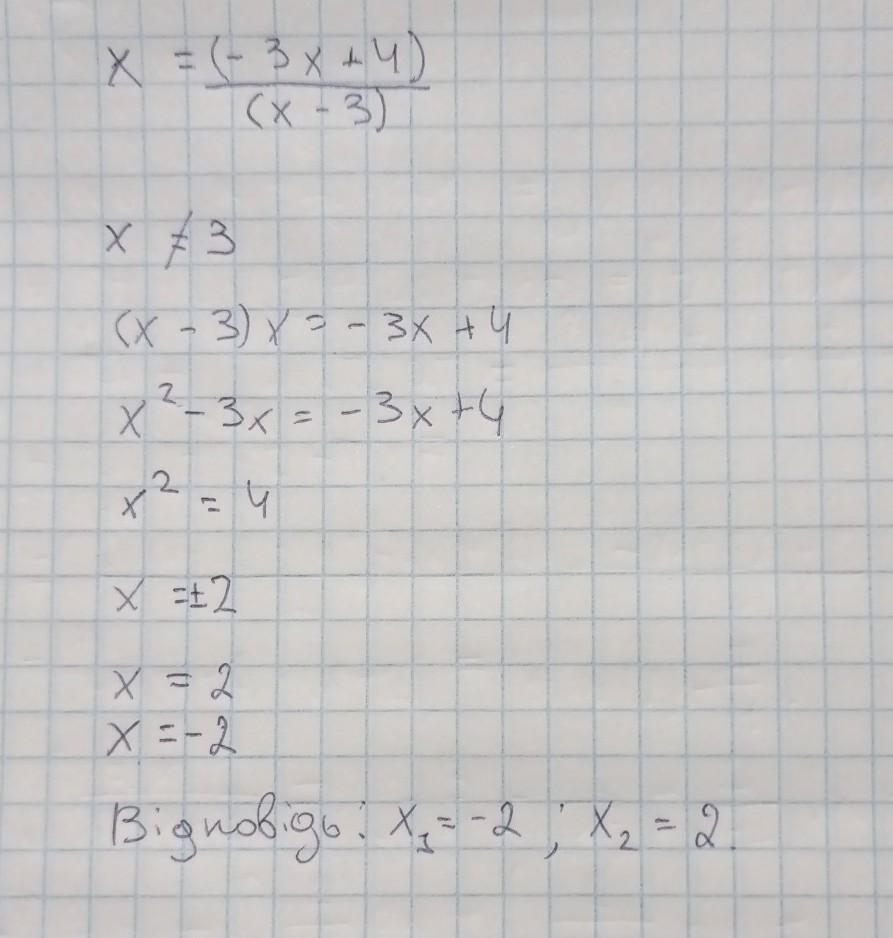 x = (-3x+4)
(x-3)
x ≠ 3
(x-3)x = -3x+4
x² - 3x = -3x+4
x² = 4
x = ±2
x = 2
x = -2
Відповідь: x₁ = -2 ; x₂ = 2.